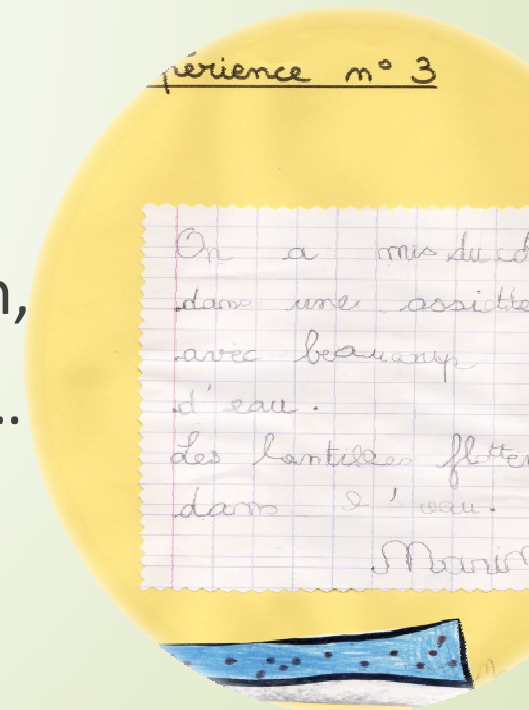 périence n° 3
n,
..
On a mis du co
dans une assiette
avec beaucoup
d'eau.
Les lentilles flotten
dans l'eau.
Marin